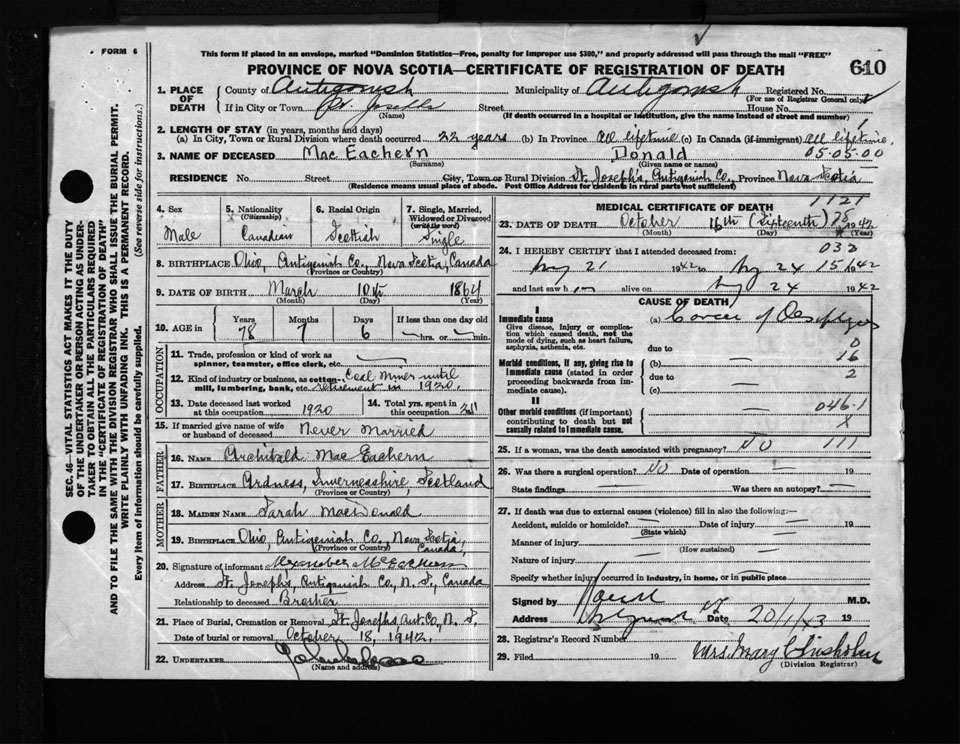 FORM 6
This form if placed in an envelope, marked "Dominion Statistics—Free, penalty for improper use $300," and properly addressed will pass through the mail "FREE"
PROVINCE OF NOVA SCOTIA—CERTIFICATE OF REGISTRATION OF DEATH 610
1. PLACE OF DEATH
County of Antigonish Municipality of Antigonish Registered No.
(For use of Registrar General only)
If in City or Town St. Josephs Street House No.
(Name) (If death occurred in a hospital or institution, give the name instead of street and number)
2. LENGTH OF STAY (in years, months and days)
(a) In City, Town or Rural Division where death occurred 22 years (b) In Province All lifetime (c) In Canada (if immigrant) All lifetime
3. NAME OF DECEASED Mac Eachern Donald 05-05-00
(Surname) (Given name or names)
RESIDENCE No. Street City, Town or Rural Division St. Joseph's, Antigonish Co., Province Nova Scotia
(Residence means usual place of abode. Post Office Address for residents in rural parts not sufficient)
4. Sex 5. Nationality (Citizenship) 6. Racial Origin 7. Single, Married, Widowed or Divorced (write the word)
Male Canadian Scottish Single
8. BIRTHPLACE Ohio, Antigonish Co., Nova Scotia, Canada
(Province or Country)
9. DATE OF BIRTH March 10th 1864
(Month) (Day) (Year)
10. AGE in Years Months Days If less than one day old
78 7 6 hrs. or min.
OCCUPATION
11. Trade, profession or kind of work as spinner, teamster, office clerk, etc.
12. Kind of industry or business, as cotton mill, lumbering, bank, etc. Coal Miner until retirement in 1920.
13. Date deceased last worked at this occupation 1920
14. Total yrs. spent in this occupation
15. If married give name of wife or husband of deceased Never Married
FATHER
16. NAME Archibald Mac Eachern
17. BIRTHPLACE Ardness, Invernesshire, Scotland
(Province or Country)
MOTHER
18. MAIDEN NAME Sarah MacDonald
19. BIRTHPLACE Ohio, Antigonish Co., Nova Scotia, Canada,
(Province or Country)
20. Signature of informant Alexander McEachern
Address St. Joseph's, Antigonish Co., N. S., Canada
Relationship to deceased Brother
21. Place of Burial, Cremation or Removal St. Josephs Ant. Co., N. S.
Date of burial or removal October 18, 1942.
22. UNDERTAKER
(Name and address)
MEDICAL CERTIFICATE OF DEATH 1121
23. DATE OF DEATH October 16th (Sixteenth) 78 1942
(Month) (Day) (Year)
24. I HEREBY CERTIFY that I attended deceased from: 032
21 1942 to 24 15 1942
and last saw him alive on 24 1942
CAUSE OF DEATH
I
Immediate cause
Give disease, injury or complication which caused death, not the mode of dying, such as heart failure, asphyxia, asthenia, etc.
(a) Cancer of Oesophagus
due to 0
Morbid conditions, if any, giving rise to immediate cause (stated in order proceeding backwards from immediate cause).
(b) 16
due to 2
(c)
II
Other morbid conditions (if important) contributing to death but not causally related to immediate cause.
046.1
X
25. If a woman, was the death associated with pregnancy? NO 111
26. Was there a surgical operation? NO Date of operation 19
State findings Was there an autopsy?
27. If death was due to external causes (violence) fill in also the following:—
Accident, suicide or homicide? Date of injury 19
(State which)
Manner of injury
(How sustained)
Nature of injury
Specify whether injury occurred in industry, in home, or in public place
Signed by M.D.
Address Date 20/1/43 19
28. Registrar's Record Number
29. Filed 19 Mrs. Mary Chisholm
(Division Registrar)
SEC. 46—VITAL STATISTICS ACT MAKES IT THE DUTY OF THE UNDERTAKER OR PERSON ACTING AS UNDERTAKER TO OBTAIN ALL THE PARTICULARS REQUIRED IN THE "CERTIFICATE OF REGISTRATION OF DEATH" AND TO FILE THE SAME WITH THE DIVISION REGISTRAR WHO SHALL ISSUE THE BURIAL PERMIT.
WRITE PLAINLY WITH UNFADING INK. THIS IS A PERMANENT RECORD.
Every item of information should be carefully supplied. (See reverse side for instructions.)